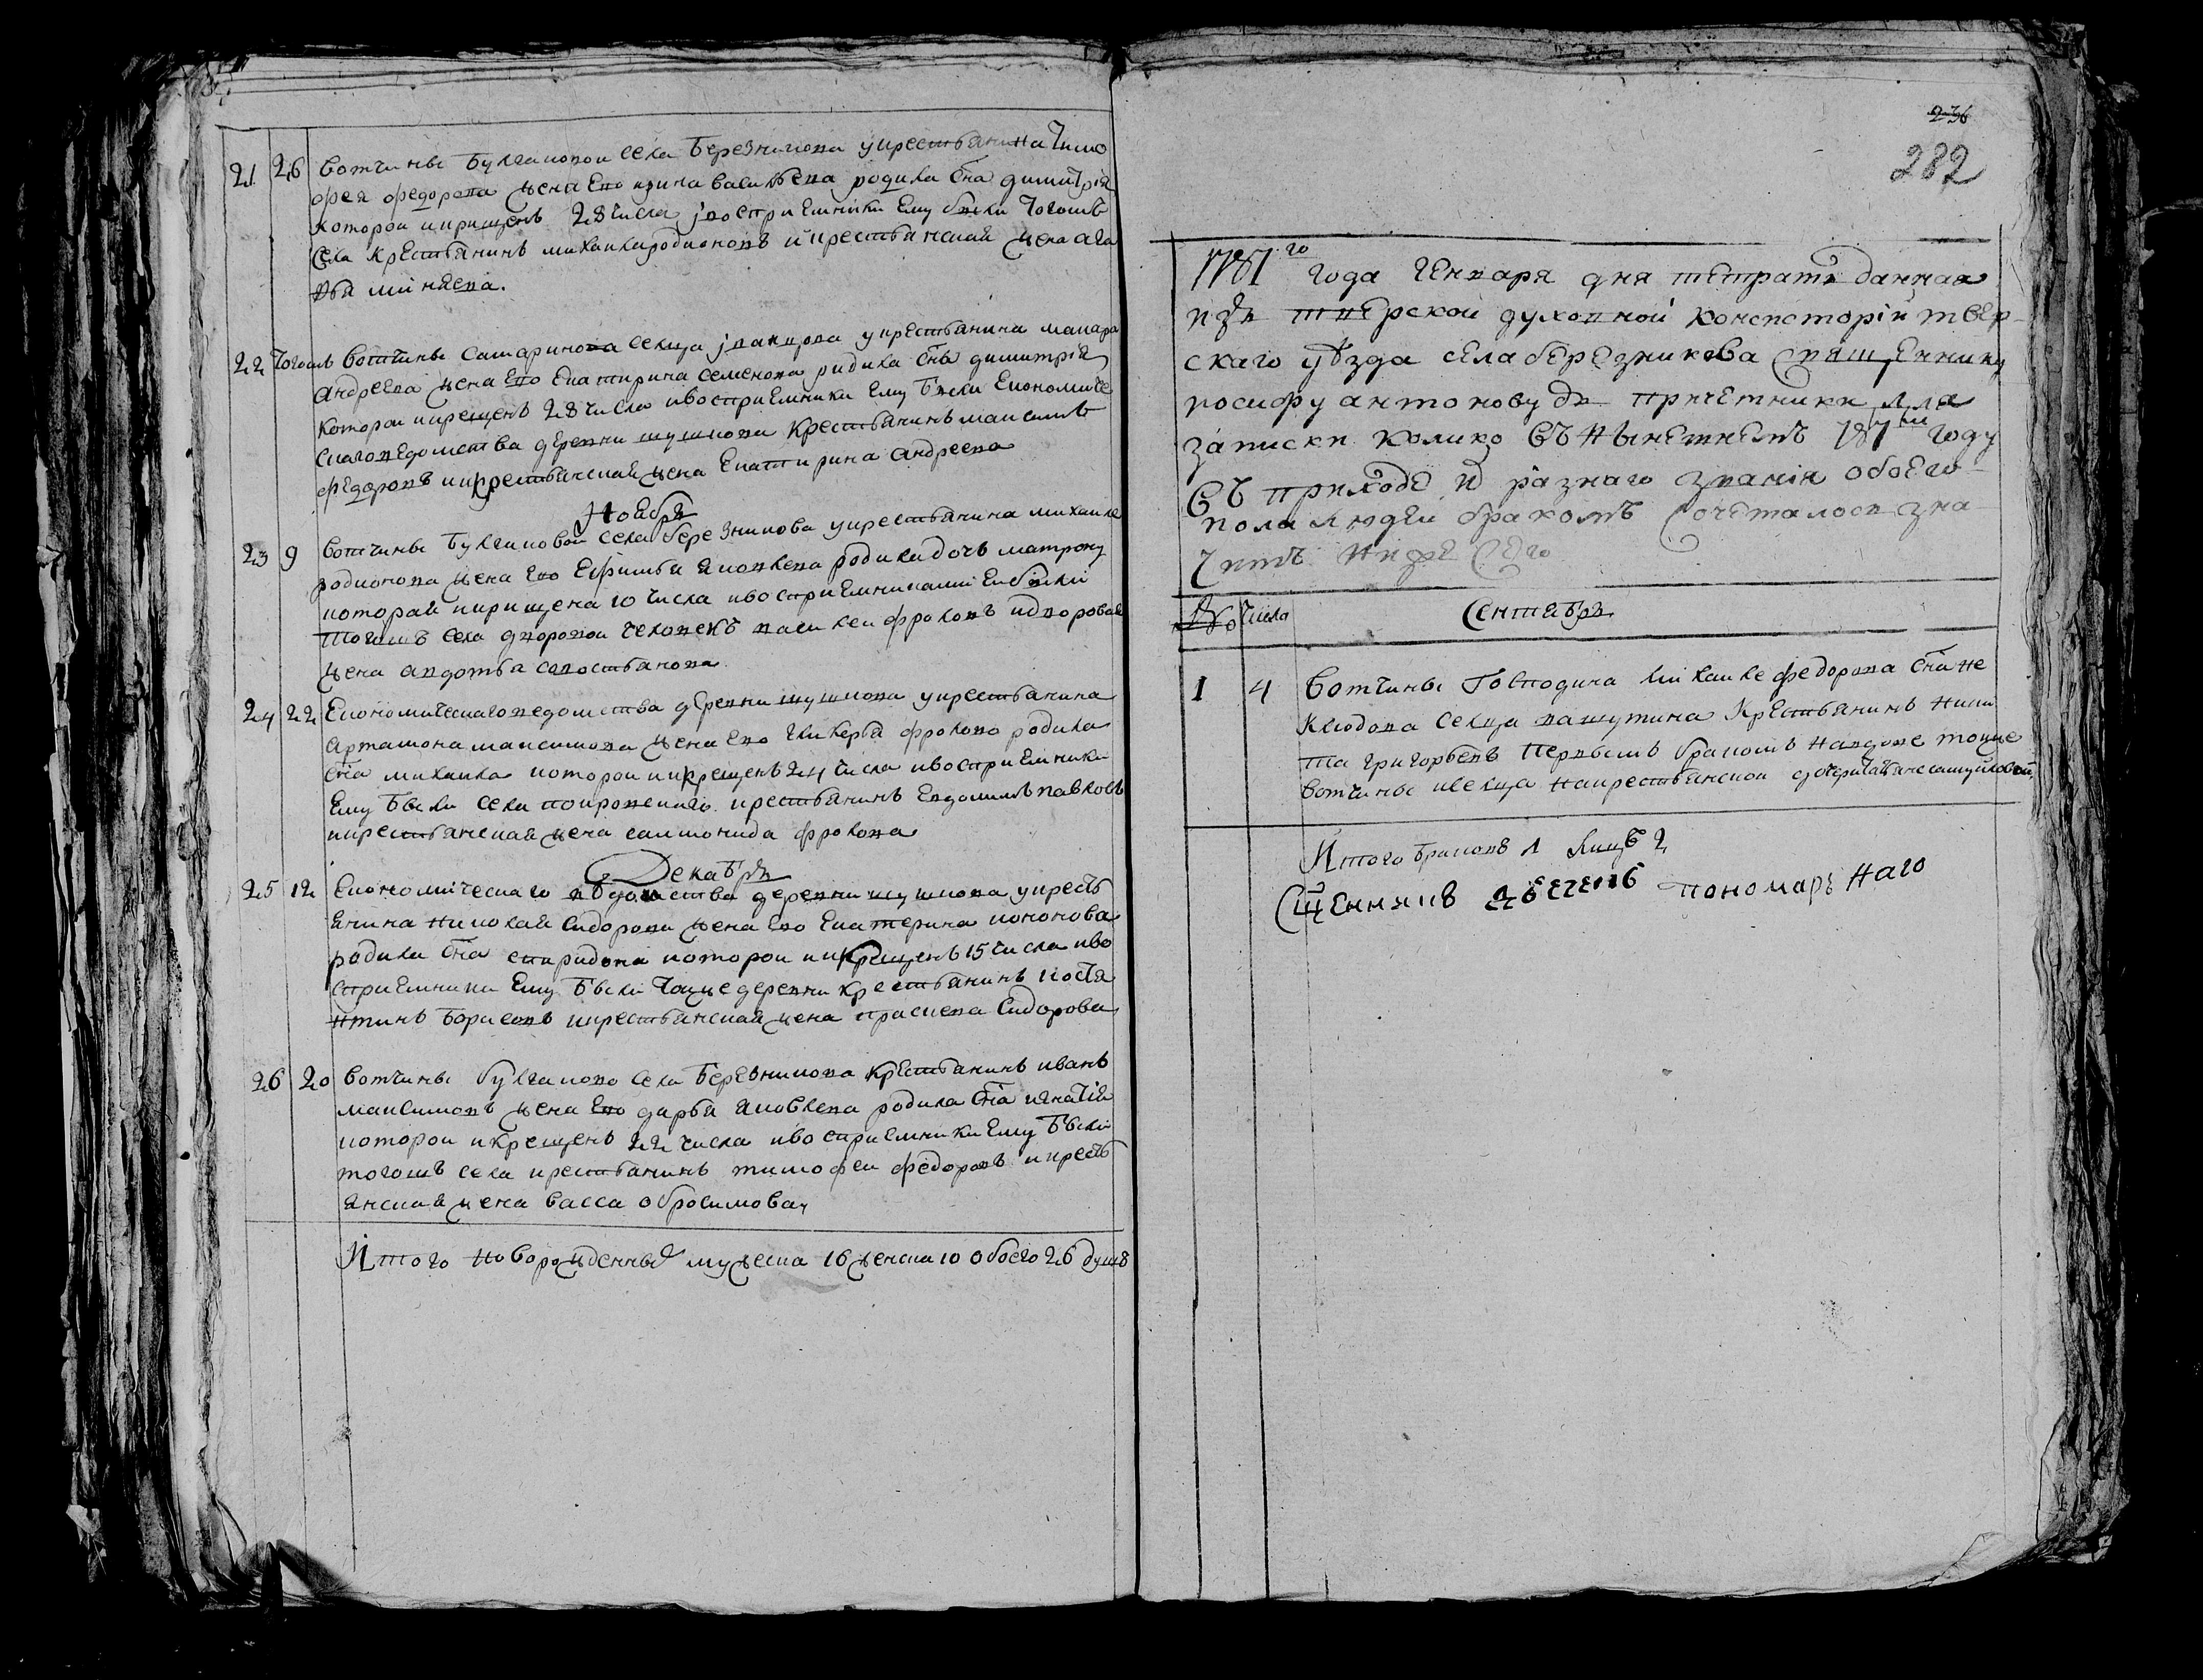 21 26 вотчины Булгаковои села Березникова укрестьянина Тимо
фея федорова жена ево ирина васильева родила сна димитрія
которои икрищенъ 28 числа івосприемники ему были тогожъ
села крестьянинъ михаила родионовъ икрестьянская жена ага
фья миняева.
22 тогожъ вотчины самаринова селца івакцова укрестьянина макара
андреева жена ево екатирина семенова родила сна димитрія
которои икрещенъ 28 числа ивосприемники ему были економиче
скаговедомства деревни шушкова крестьянинъ максимъ
федоровъ икрестьянская жена екатирина андреева
Ноября
23 9 вотчины Булгаковои села березникова укрестьянина михаила
родионова жена ево ефимья яковлева родила дочь матрону
которая икрищена 10 числа ивосприемниками еи были
тогожъ села дворовои человекъ василеи фроловъ идворовая
жена авдотья савостьянова
24 22 Економическаговедомства деревни шушкова укрестьянина
артамона максимова жена ево гликерья фролово родила
сна михаила которои икрещенъ 24 числа ивосприемники
ему были села покровскаго крестьянинъ евдокимъ павловъ
икрестьянская жена саломонида фролова
Декабря
25 12 Економическаго ведомства деревни шушкова укресть
янина николая сидорова жена ево екатерина кононова
родила сна спиридона которои икрещенъ 15 числа иво
сприемники ему были тояже деревни крестьянинъ костя
нтинъ борисовъ икрестьянская жена прасковя сидорова
26 20 вотчины булгаково села Березникова крестьянинъ иванъ
максимовъ жена ево дарья яковлева родила сна игнатія
которои икрещенъ 22 числа ивосприемники ему были
тогожъ села крестьянинъ тимофеи федоровъ икресть
янская жена васса обросимова
Итого новорожденныхъ мужеска 16 женска 10 обоего 26 душъ
236
282
1781го года генваря дня тетрать данная
изъ тверской духовной консистории твер
скаго уѣзда села березникова священнику
иосифу антонову съ причетники для
записки колико въ нынешнемъ 781м году
въ приходѣ ихъ разнаго званія обоего
пола людеи бракомъ сочеталось зна
читъ ниже сего
№ числа Сентября
1 4 вотчины господина михаиле федорова сна не
клюдова селца вашутина крестьянинъ ники
та григорьевъ первымъ бракомъ навдове тояже
вотчины иселца накрестьянскои дочери
Итого браковъ 1 лицъ 2
пономарь